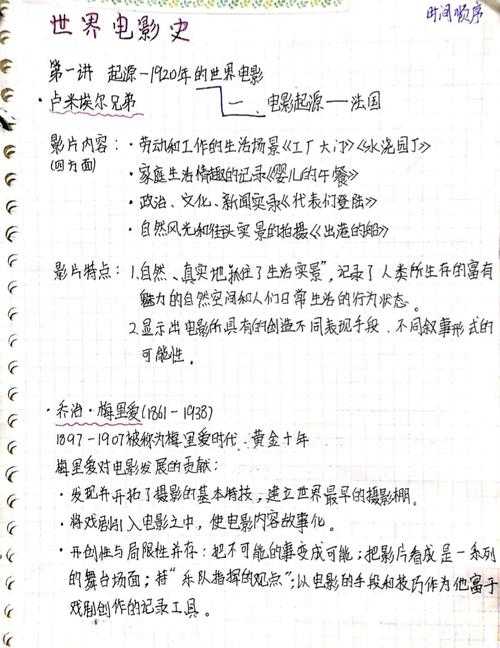 世界电影史
时间顺序
第一讲 起源-1920年的世界电影
·卢米埃尔兄弟
一、电影起源——法国
影片内容:·劳动和工作的生活场景《工厂大门》《水浇园丁》
(四方面)
·家庭生活情趣的记录《婴儿的午餐》
·政治、文化、新闻实录《代表们登陆》
·自然风光和街头实景的拍摄《出港的船》
影片特点:1.自然、真实地抓住了生活实景”,记录了人类所生存的富有
魅力的自然空间和人们日常生活的行为状态。
2.显示出电影所具有的创造不同表现手段、不同叙事形式的
可能性.
·乔治·梅里爱(1861-1938)
1897-1907被称为梅里爱时代.黄金十年
梅里爱对电影发展的贡献:
·发现并开拓了摄影的基本特技,建立世界最早的摄影棚.
·将戏剧引入电影之中,使电影内容故事化。
·开创性与局限性并存:把不可能的事变成可能;把影片看成是一系列
的舞台场面;持“乐队指挥的观点”;以电影的手段和技巧作为他富于
戏剧创作的记录工具。